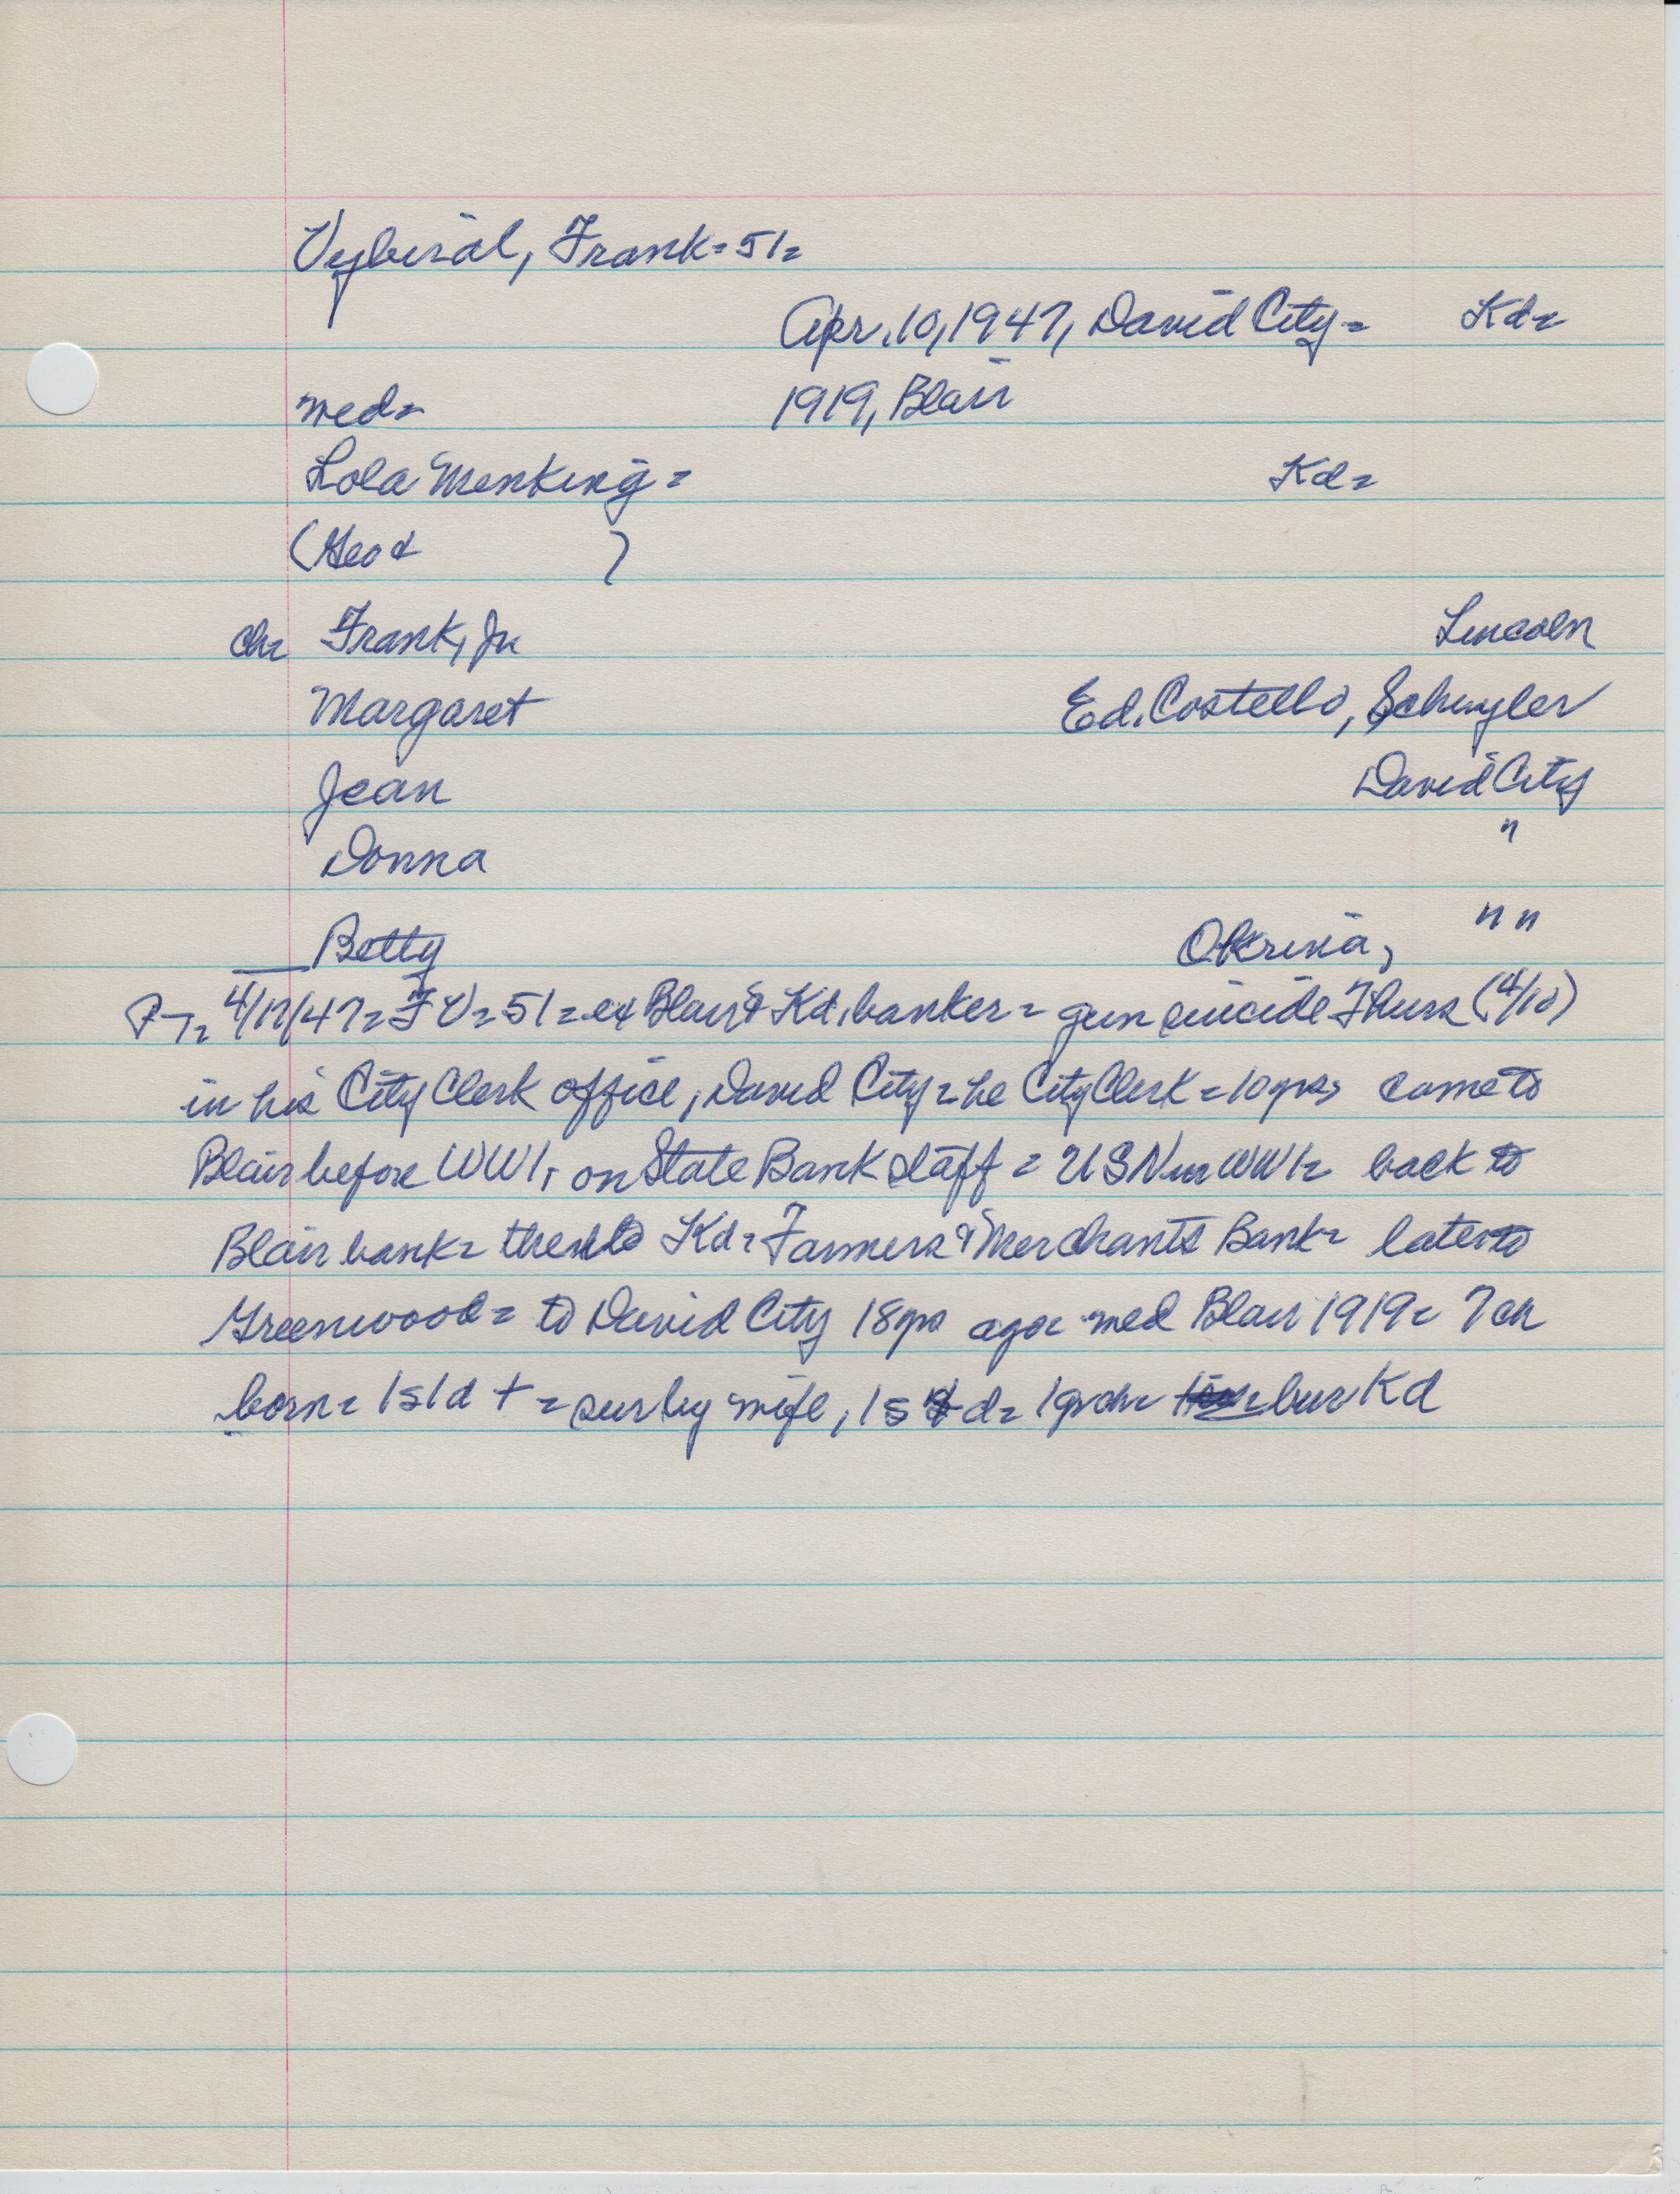 Vybiral, Frank = 51 =
Apr. 10, 1947, David City = Kd =
med = 1919, Blair
Lola Menking = Kd =
(Geo & )
ch = Frank, Jr Lincoln
Margaret Ed. Costello, Schuyler
Jean David City
Donna "
Betty Okrina, " "
4/17/47 = FV = 51 = ex Blair & Kd. banker = gun suicide Thurs (4/10)
in his City Clerk office, David City = he City Clerk = 10 yrs, came to
Blair before WW1, on State Bank staff = USN in WW1 = back to
Blair bank = then to Kd = Farmers & Merchants Bank = later to
Greenwood = to David City 18 yrs ago = med Blair 1919 = 7 ch
born = 1s 1d + = sur by wife, 1s d = 1 grch = bur Kd